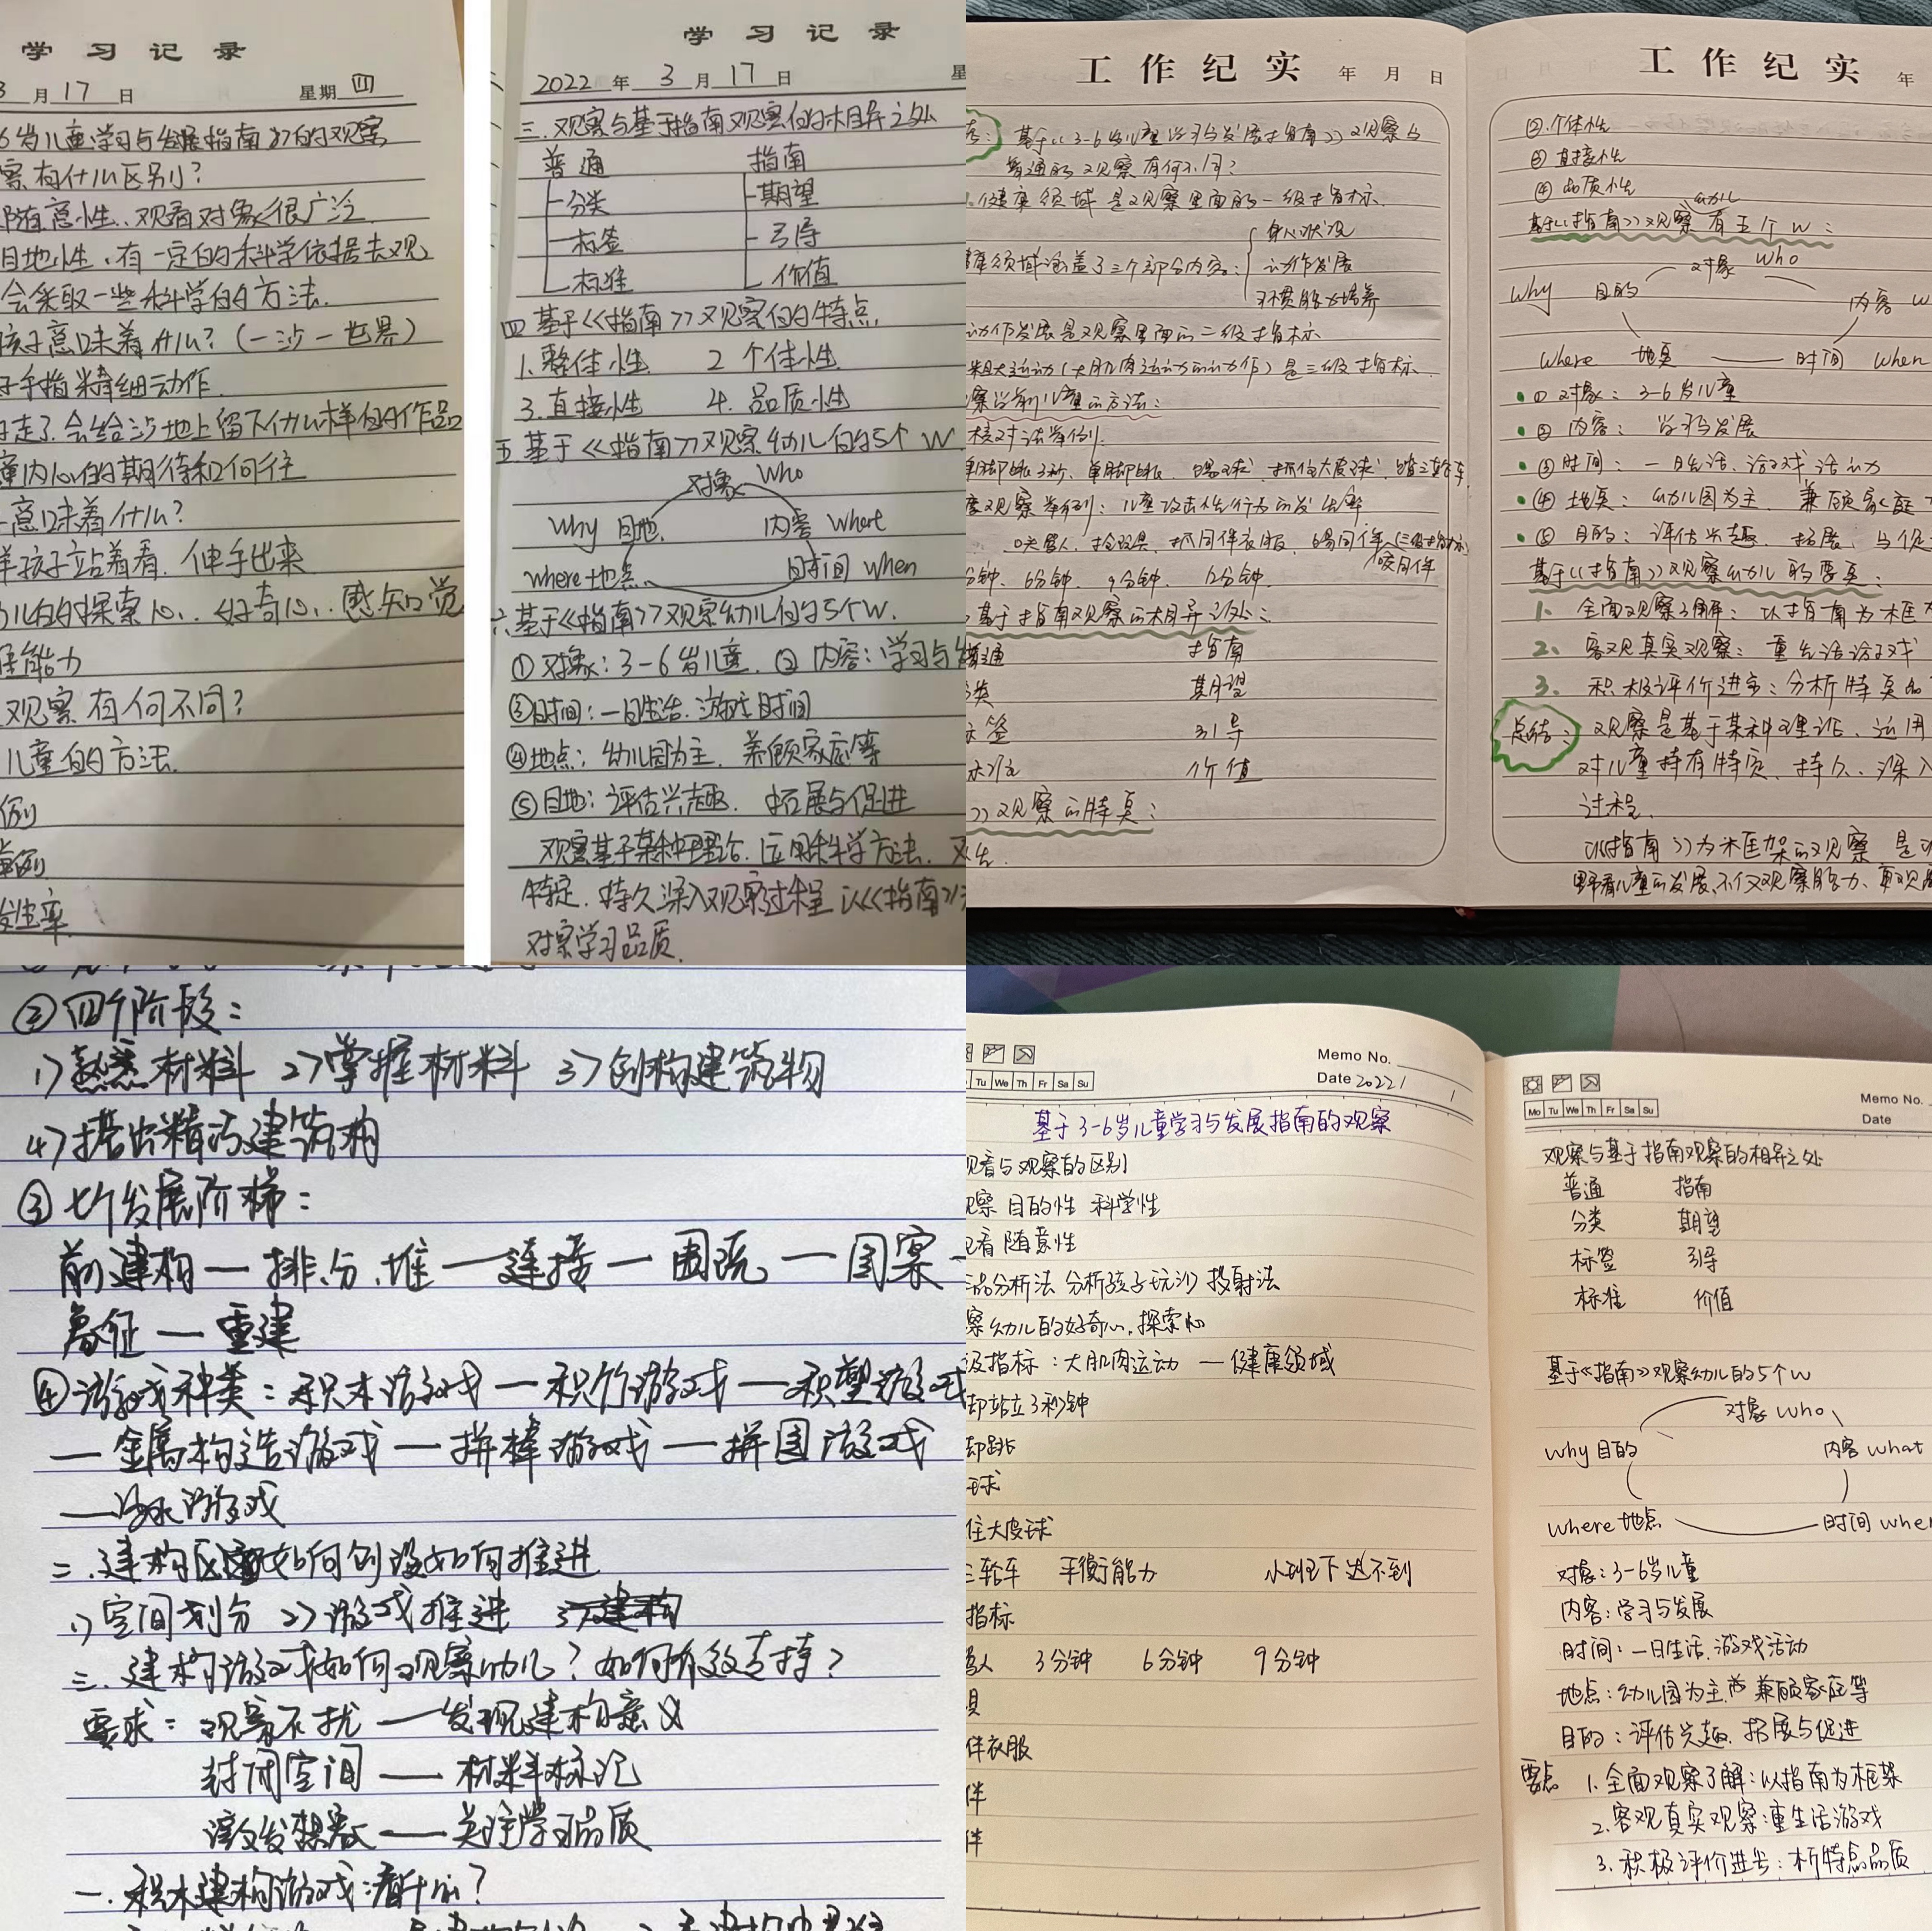 学习记录
3月17日 星期四
6岁儿童学习与发展指南》的观察
察有什么区别?
随意性、观看对象很广泛
目地性、有一定的科学依据去观
会采取一些科学的方法.
孩子意味着什么?(一沙一世界)
子手指精细动作
走了.会给沙地上留下什么样的作品
童内心的期待和向往
意味着什么?
样孩子站着看.伸手出来
儿的的探索心、好奇心、感知觉
能力
观察有何不同?
儿童的的方法.
例
举例
发生率.
学习记录
2022年3月17日 星
三.观察与基于指南观察的的相异之处
普通 指南
分类 期望
标签 引导
标准 价值
四基于《指南》观察的的特点
1.整体性 2个体性
3.直接性 4.品质性
五.基于《指南》观察幼儿的的5个W
对象 Who
Why 目地. 内容 Whert
where地点 时间 When
六基于《指南》观察幼儿的的5个W.
①对象:3-6岁儿童.②内容:学习与
③时间:一日生活.游戏时间
④地点:幼儿园为主.养顾家庭等
⑤目地:评估兴趣.拓展与促进
观察基于某种理论.运用科学方法.
特定.持久深入观察过程以《指南》
对察学习品质.
工作纪实 年 月 日
基于《3-6岁儿童学习与发展指南》观察与
普通的观察有何不同?
健康领域是观察里面的一级指标.
身心状况
康领域涵盖了三个部分内容: 动作发展
习惯能力培养
动作发展是观察里面的二级指标
粗大运动(大肌肉运动的动作)是三级指标.
察学前儿童的方法:
核对法举例.
单脚站3秒、单脚跳、踢球、抓住大皮球、踏三轮车
观察举例:儿童攻击性行为的发生率
咬别人、抢玩具、抓同伴衣服、踢同伴(三级指标)
咬同伴
分钟、6分钟、9分钟、12分钟.
基于指南观察的相异之处:
普通 指南
分类 期望
标签 引导
标准 价值
》观察的特点:
工作纪实 年
②.个体性
③直接性
④品质性
幼儿
基于《指南》观察有五个W:
对象 Who
Why 目的 内容 w
where 地点 时间 when
①对象:3-6岁儿童
②内容:学习发展
③时间:一日生活、游戏活动
④地点:幼儿园为主、兼顾家庭
⑤目的:评估兴趣、拓展与促
基于《指南》观察幼儿的要点:
1.全面观察了解:以指南为框
2.客观真实观察:重生活游戏
3.积极评价进步:分析特点品
总结:观察是基于某种理论、运用
对儿童持有特定、持久、深入
过程.
以《指南》为框架的观察是
野看儿童的发展、不仅观察能力、更观
②四个阶段:
1)熟悉材料 2)掌握材料 3)创构建筑物
4)搭出精巧建筑物
③七个发展阶梯:
前建构—排、分、堆—连接—围圈—图案—
象征—重建
④游戏种类:积木游戏—积竹游戏—积塑游戏
—金属构造游戏—拼棒游戏—拼图游戏
—游戏
二.建构区如何创设如何推进
1)空间划分 2)游戏推进 3)建构
三.建构游戏如何观察幼儿?如何有效支持?
要求:观察不扰—发现建构意义
封闭空间—材料标记
激发想象—关注学习品质
一.积木建构游戏看什么?
Memo No.
Date 2022/
Tu We Th Fr Sa Su
基于3-6岁儿童学习与发展指南的观察
观看与观察的区别
观察 目的性 科学性
观看 随意性
作品分析法 分析孩子玩沙 投射法
察幼儿的好奇心.探索心
级指标:大肌肉运动—健康领域
却站立3秒钟
却跳
球
住大皮球
三轮车 平衡能力 小班下达不到
指标
骂人 3分钟 6分钟 9分钟
具
伴衣服
伴
伴
Memo No.
Mo Tu We Th Fr Sa Su
Date
观察与基于指南观察的相异之处
普通 指南
分类 期望
标签 引导
标准 价值
基于《指南》观察幼儿的5个W
对象 who
why目的 内容 what
where地点 时间 when
对象:3-6岁儿童
内容:学习与发展
时间:一日生活.游戏活动
地点:幼儿园为主.兼顾家庭等
目的:评估兴趣.拓展与促进
要点 1.全面观察了解:以指南为框架
2.客观真实观察:重生活游戏
3.积极评价进步:析特点品质